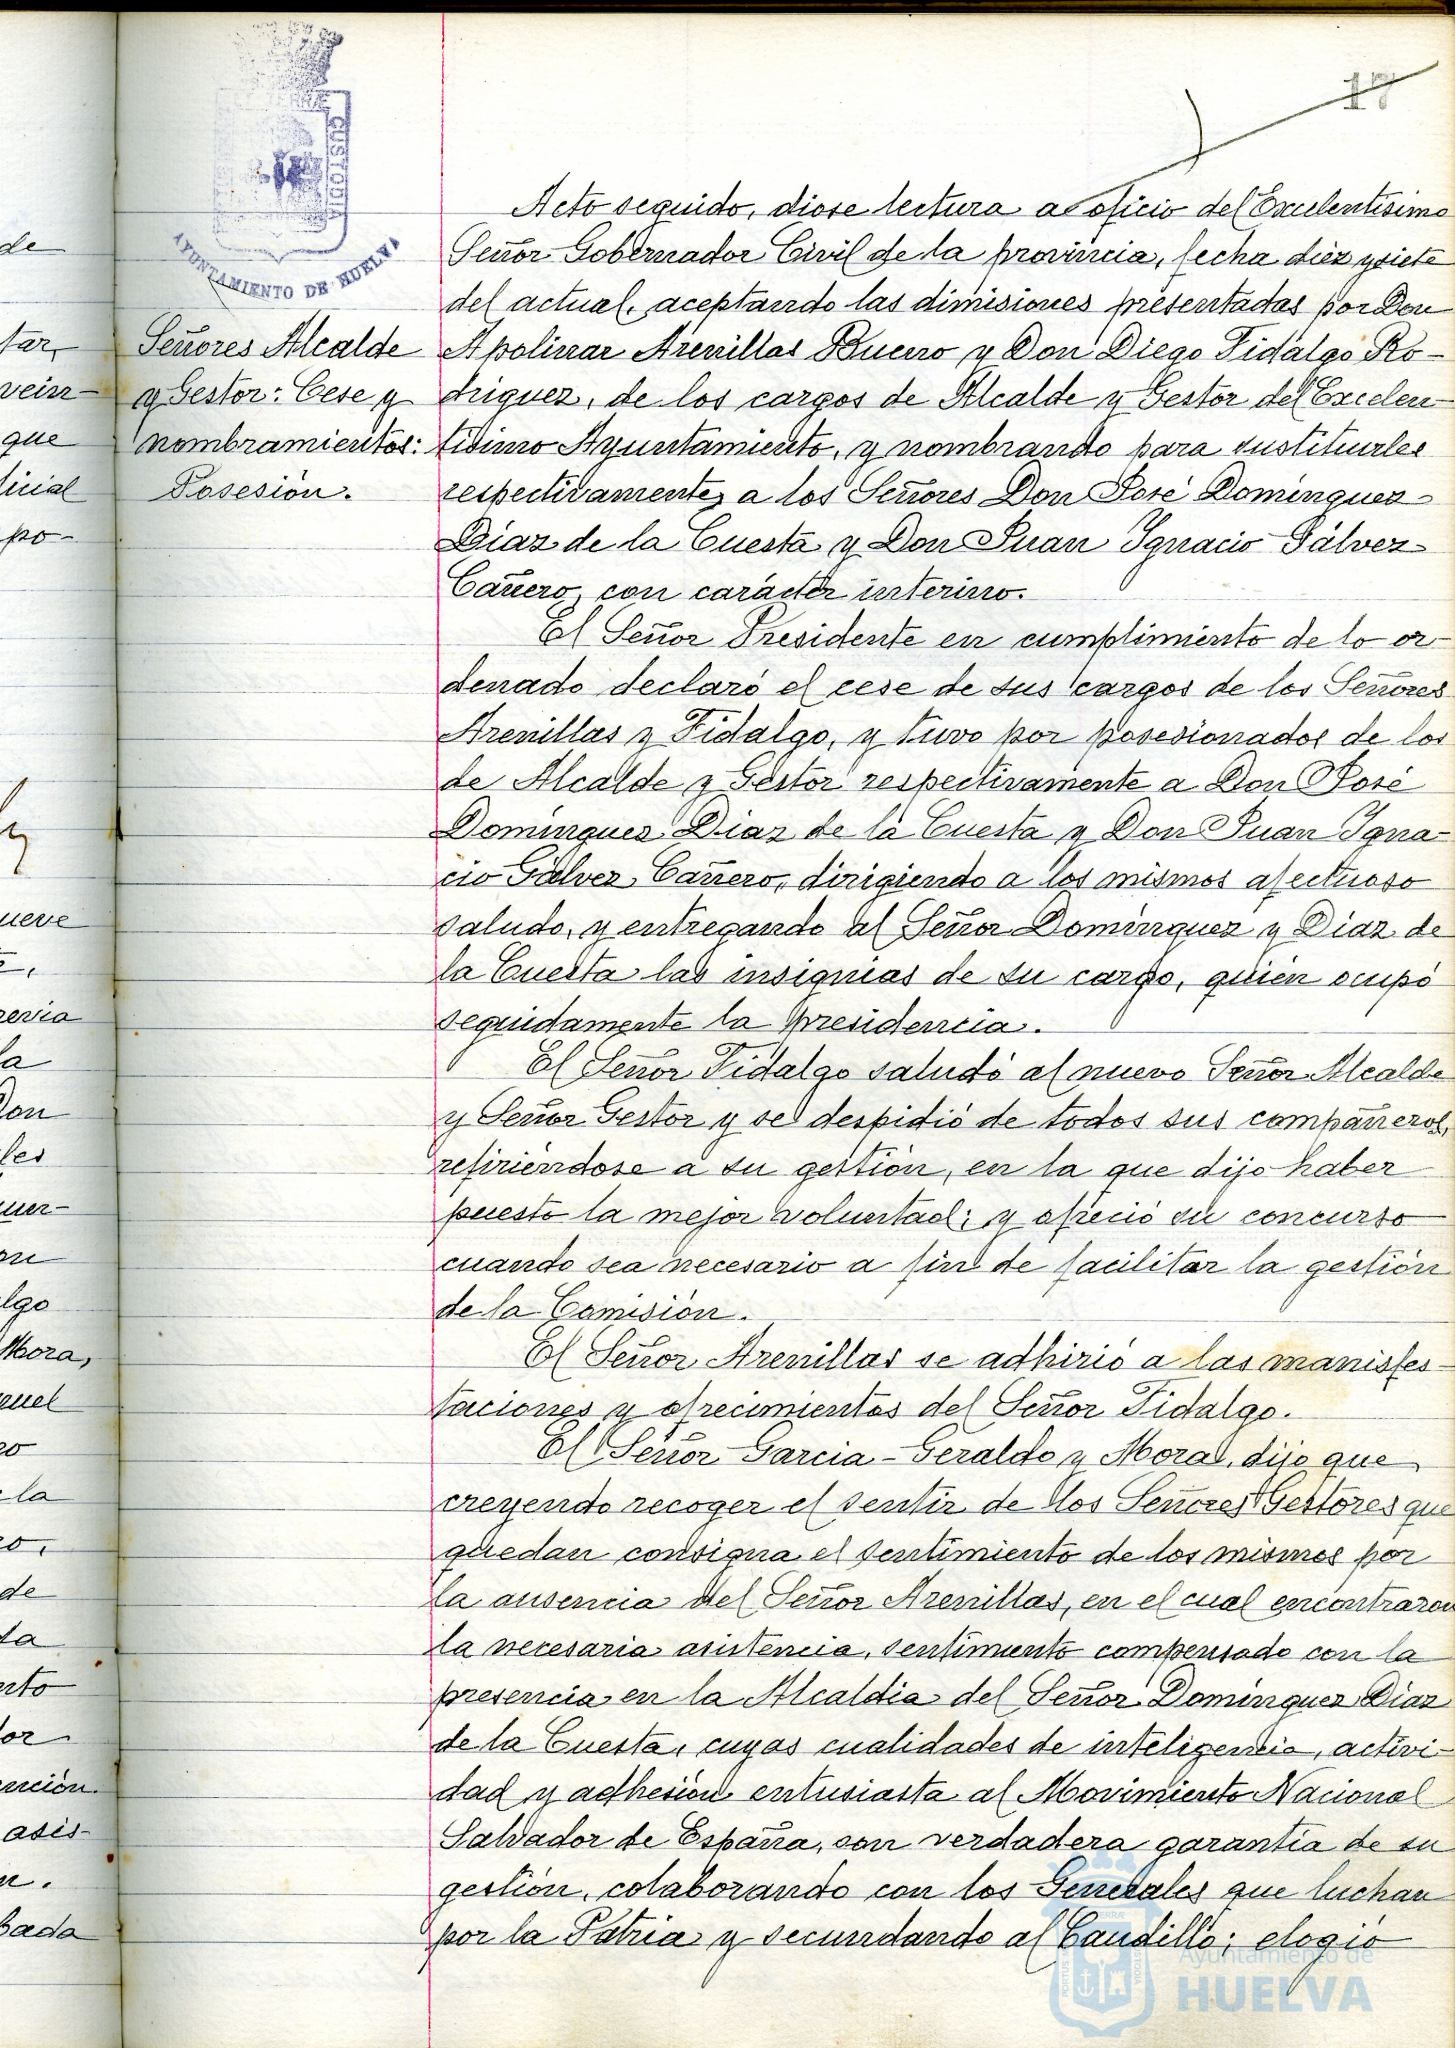 17
TERRÆ
CUSTODIA
AYUNTAMIENTO DE HUELVA
Señores Alcalde
y Gestor: Cese y
nombramientos:
Posesión.
Acto seguido, diose lectura a oficio del Excelentisimo
Señor Gobernador Civil de la provincia, fecha diez y siete
del actual, aceptando las dimisiones presentadas por Don
Apolinar Arenillas Bueno y Don Diego Fidalgo Ro-
driguez, de los cargos de Alcalde y Gestor del Excelen-
tisimo Ayuntamiento, y nombrando para sustituirles
respectivamente, a los Señores Don José Dominguez
Diaz de la Cuesta y Don Juan Ignacio Gálvez
Cañero, con carácter interino.
El Señor Presidente en cumplimiento de lo or-
denado declaró el cese de sus cargos de los Señores
Arenillas y Fidalgo, y tuvo por posesionados de los
de Alcalde y Gestor respectivamente a Don José
Dominguez Diaz de la Cuesta y Don Juan Igna-
cio Gálvez Cañero, dirigiendo a los mismos afectuoso
saludo, y entregando al Señor Dominguez y Diaz de
la Cuesta las insignias de su cargo, quién ocupó
seguidamente la presidencia.
El Señor Fidalgo saludó al nuevo Señor Alcalde
y Señor Gestor y se despidió de todos sus compañeros,
refiriéndose a su gestión, en la que dijo haber
puesto la mejor voluntad; y ofreció su concurso
cuando sea necesario a fin de facilitar la gestión
de la Comisión.
El Señor Arenillas se adhirió a las manisfes-
taciones y ofrecimientos del Señor Fidalgo.
El Señor Garcia-Geraldo y Mora, dijo que
creyendo recoger el sentir de los Señores Gestores que
quedan consigna el sentimiento de los mismos por
la ausencia del Señor Arenillas, en el cual encontraron
la necesaria asistencia, sentimiento compensado con la
presencia en la Alcaldia del Señor Dominguez Diaz
de la Cuesta, cuyas cualidades de inteligencia, activi-
dad y adhesión entusiasta al Movimiento Nacional
Salvador de España, son verdadera garantia de su
gestión, colaborando con los Generales que luchan
por la Patria y secundando al Caudillo; elogió
Ayuntamiento de
HUELVA